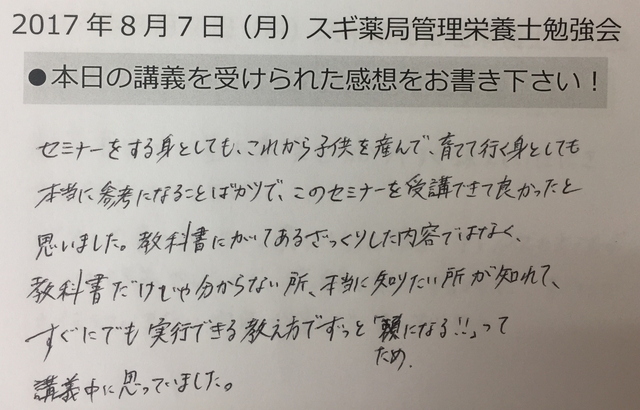 2017年8月7日（月）スギ薬局管理栄養士勉強会
●本日の講義を受けられた感想をお書き下さい！
セミナーをする身としても、これから子供を産んで、育てて行く身としても
本当に参考になることばかりで、このセミナーを受講できて良かったと
思いました。教科書にかいてあるざっくりした内容ではなく、
教科書だけじゃ分からない所、本当に知りたい所が知れて、
すぐにでも実行できる教え方でずっと「になる!!」って
ため
講義中に思っていました。